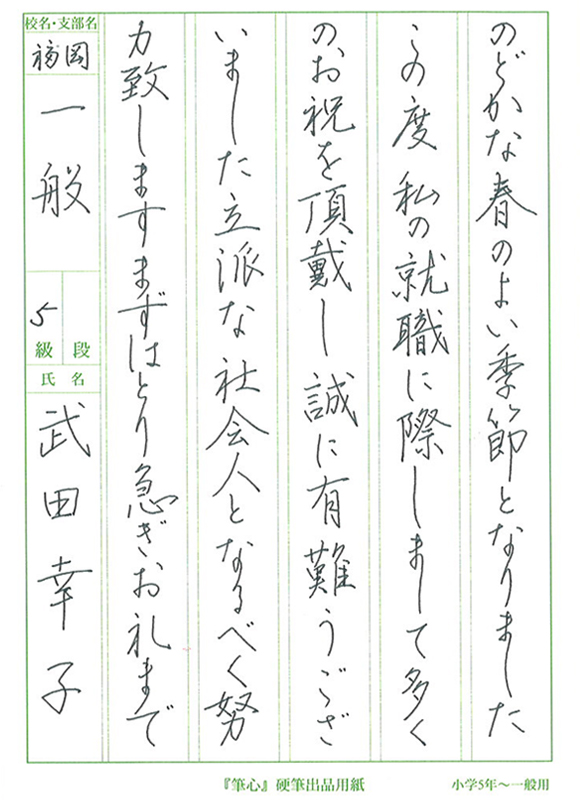 のどかな春のよい季節となりました
この度私の就職に際しまして多く
の、お祝を頂戴し誠に有難うござ
いました立派な社会人となるべく努
力致しますまずはとり急ぎお礼まで
校名・支部名
福岡
一般
5
級 段
氏名
武田幸子
『筆心』硬筆出品用紙
小学5年〜一般用